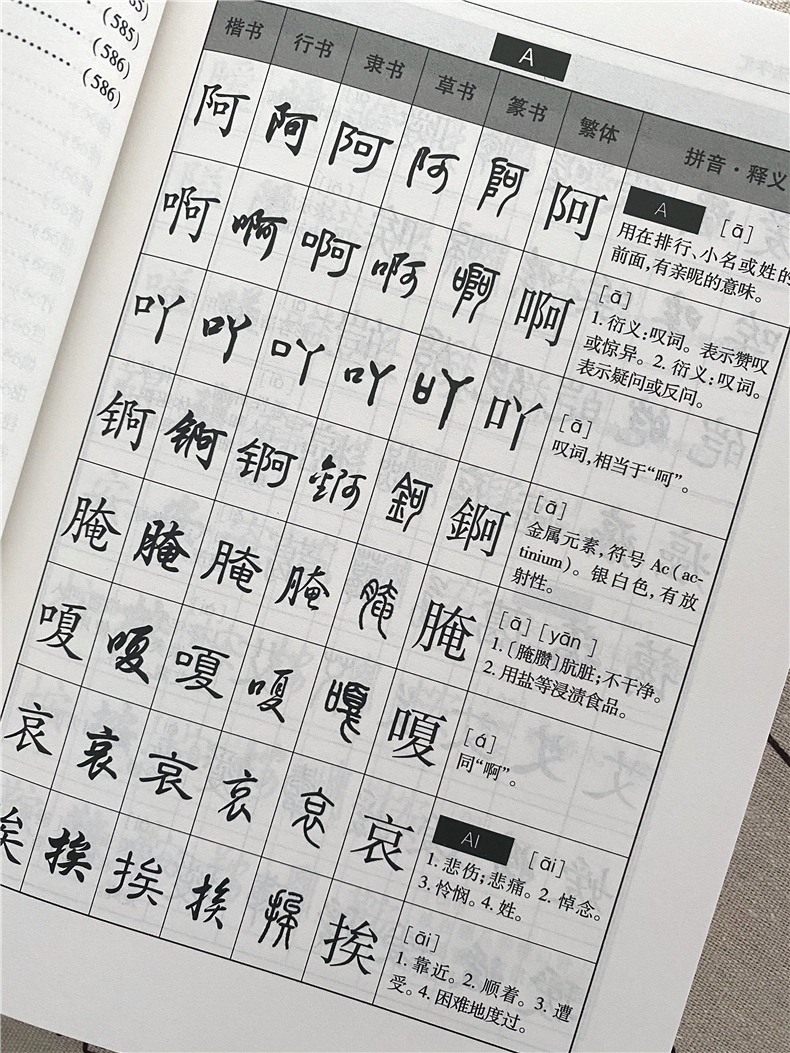 (585)
(586)
(586)
A
楷书 行书 隶书 草书 篆书 繁体 拼音·释义
阿 阿 阿 阿 阿 阿
A [ā]
用在排行、小名或姓的
前面,有亲昵的意味。
啊 啊 啊 啊 啊 啊
[ā]
1. 衍义:叹词。表示赞叹
或惊异。2. 衍义:叹词。
表示疑问或反问。
吖 吖 吖 吖 吖 吖
[ā]
叹词,相当于“呵”。
锕 锕 锕 錒 錒 錒
[ā]
金属元素,符号 Ac(ac-
tinium)。银白色,有放
射性。
腌 腌 腌 腌 腌 腌
[ā][yān]
1.〔腌臜〕肮脏;不干净。
2. 用盐等浸渍食品。
嗄 嗄 嗄 嗄 嗄 嗄
[á]
同“啊”。
哀 哀 哀 哀 哀 哀
AI [āi]
1. 悲伤;悲痛。2. 悼念。
3. 怜悯。4. 姓。
挨 挨 挨 挨 挨 挨
[āi]
1. 靠近。2. 顺着。3. 遭
受。4. 困难地度过。